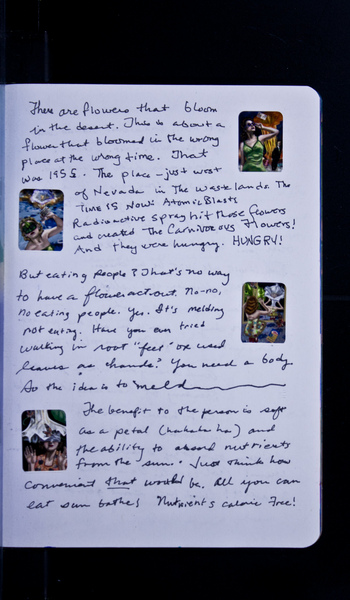 There are flowers that bloom
in the desert. This is about a
flower that bloomed in the wrong
place at the wrong time. That
was 1955. The place - just west
of Nevada in The Wastelands. The
Time is Now! Atomic Blasts
Radioactive spray hit those flowers
and created The Carnivorous Flowers!
And they were hungry. HUNGRY!
But eating people? That's no way
to have a flower act out. No-no,
no eating people. Yes. It's melding
not eating. Have you ever tried
walking in root "feet" or used
leaves as hands? You need a body.
So the idea is to meld
The benefit to the person is soft
as a petal (hahaha ha) and
the ability to absorb nutrients
from the sun. Just think how
convenient that would be. All you can
eat sun bathe! Nutrients calorie Free!